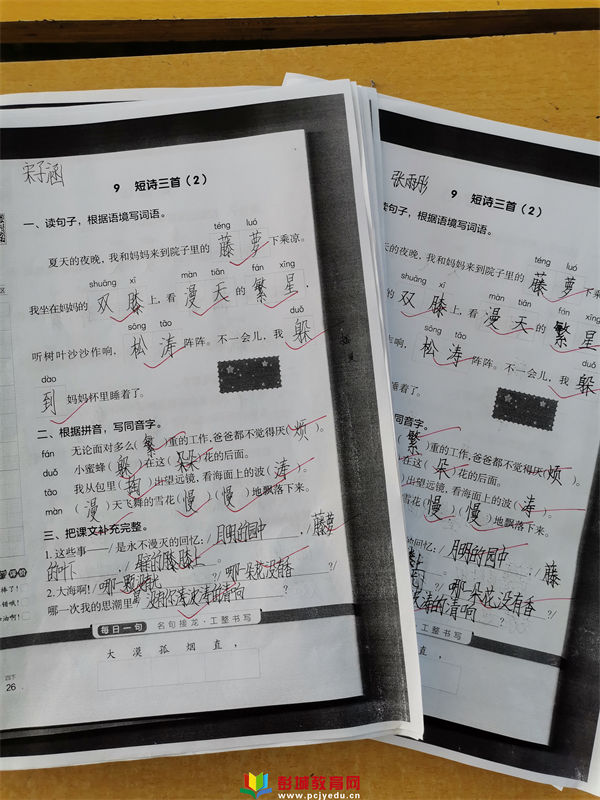 宋子涵
9 短诗三首（2）
一、读句子，根据语境写词语。
téng luó
夏天的夜晚，我和妈妈来到院子里的 藤 萝 下乘凉。
shuāng xī màn tiān fán xīng
我坐在妈妈的 双 膝 上，看 漫 天 的 繁 星，
sóng tāo duǒ
听树叶沙沙作响， 松 涛 阵阵。不一会儿，我 躲
dào
到 妈妈怀里睡着了。
二、根据拼音，写同音字。
fán 无论面对多么（繁）重的工作，爸爸都不觉得厌（烦）。
duǒ 小蜜蜂（躲）在这（朵）花的后面。
tāo 我从包里（掏）出望远镜，看海面上的波（涛）。
màn （漫）天飞舞的雪花（慢）（慢）地飘落下来。
三、把课文补充完整。
1.这些事——/是永不漫灭的回忆：/月明的园中，/藤萝
的叶下，/母亲的膝上。
2.大海啊！/哪一颗星没有光？/哪一朵花没有香？/
哪一次我的思潮里/没有你波涛的清响？
每日一句 名句接龙·工整书写
大 漠 孤 烟 直，
四下
26
张雨彤
9 短诗三首（2）
读句子，根据语境写词语。
téng luó
天的夜晚，我和妈妈来到院子里的 藤 萝 下乘
shuāng xī màn tiān fán xīng
的 双 膝 上，看 漫 天 的 繁 星
sóng tāo duǒ
作响， 松 涛 阵阵。不一会儿，我 躲
睡着了。
写同音字。
（繁）重的工作，爸爸都不觉得厌（烦）。
在这（朵）花的后面。
出望远镜，看海面上的波（涛）。
（慢）（慢）地飘落下来。
回忆：/月明的园中，/藤
哪一朵花没有香？/
波涛的清响？
工整书写
彭城教育网
www.pcjyedu.cn